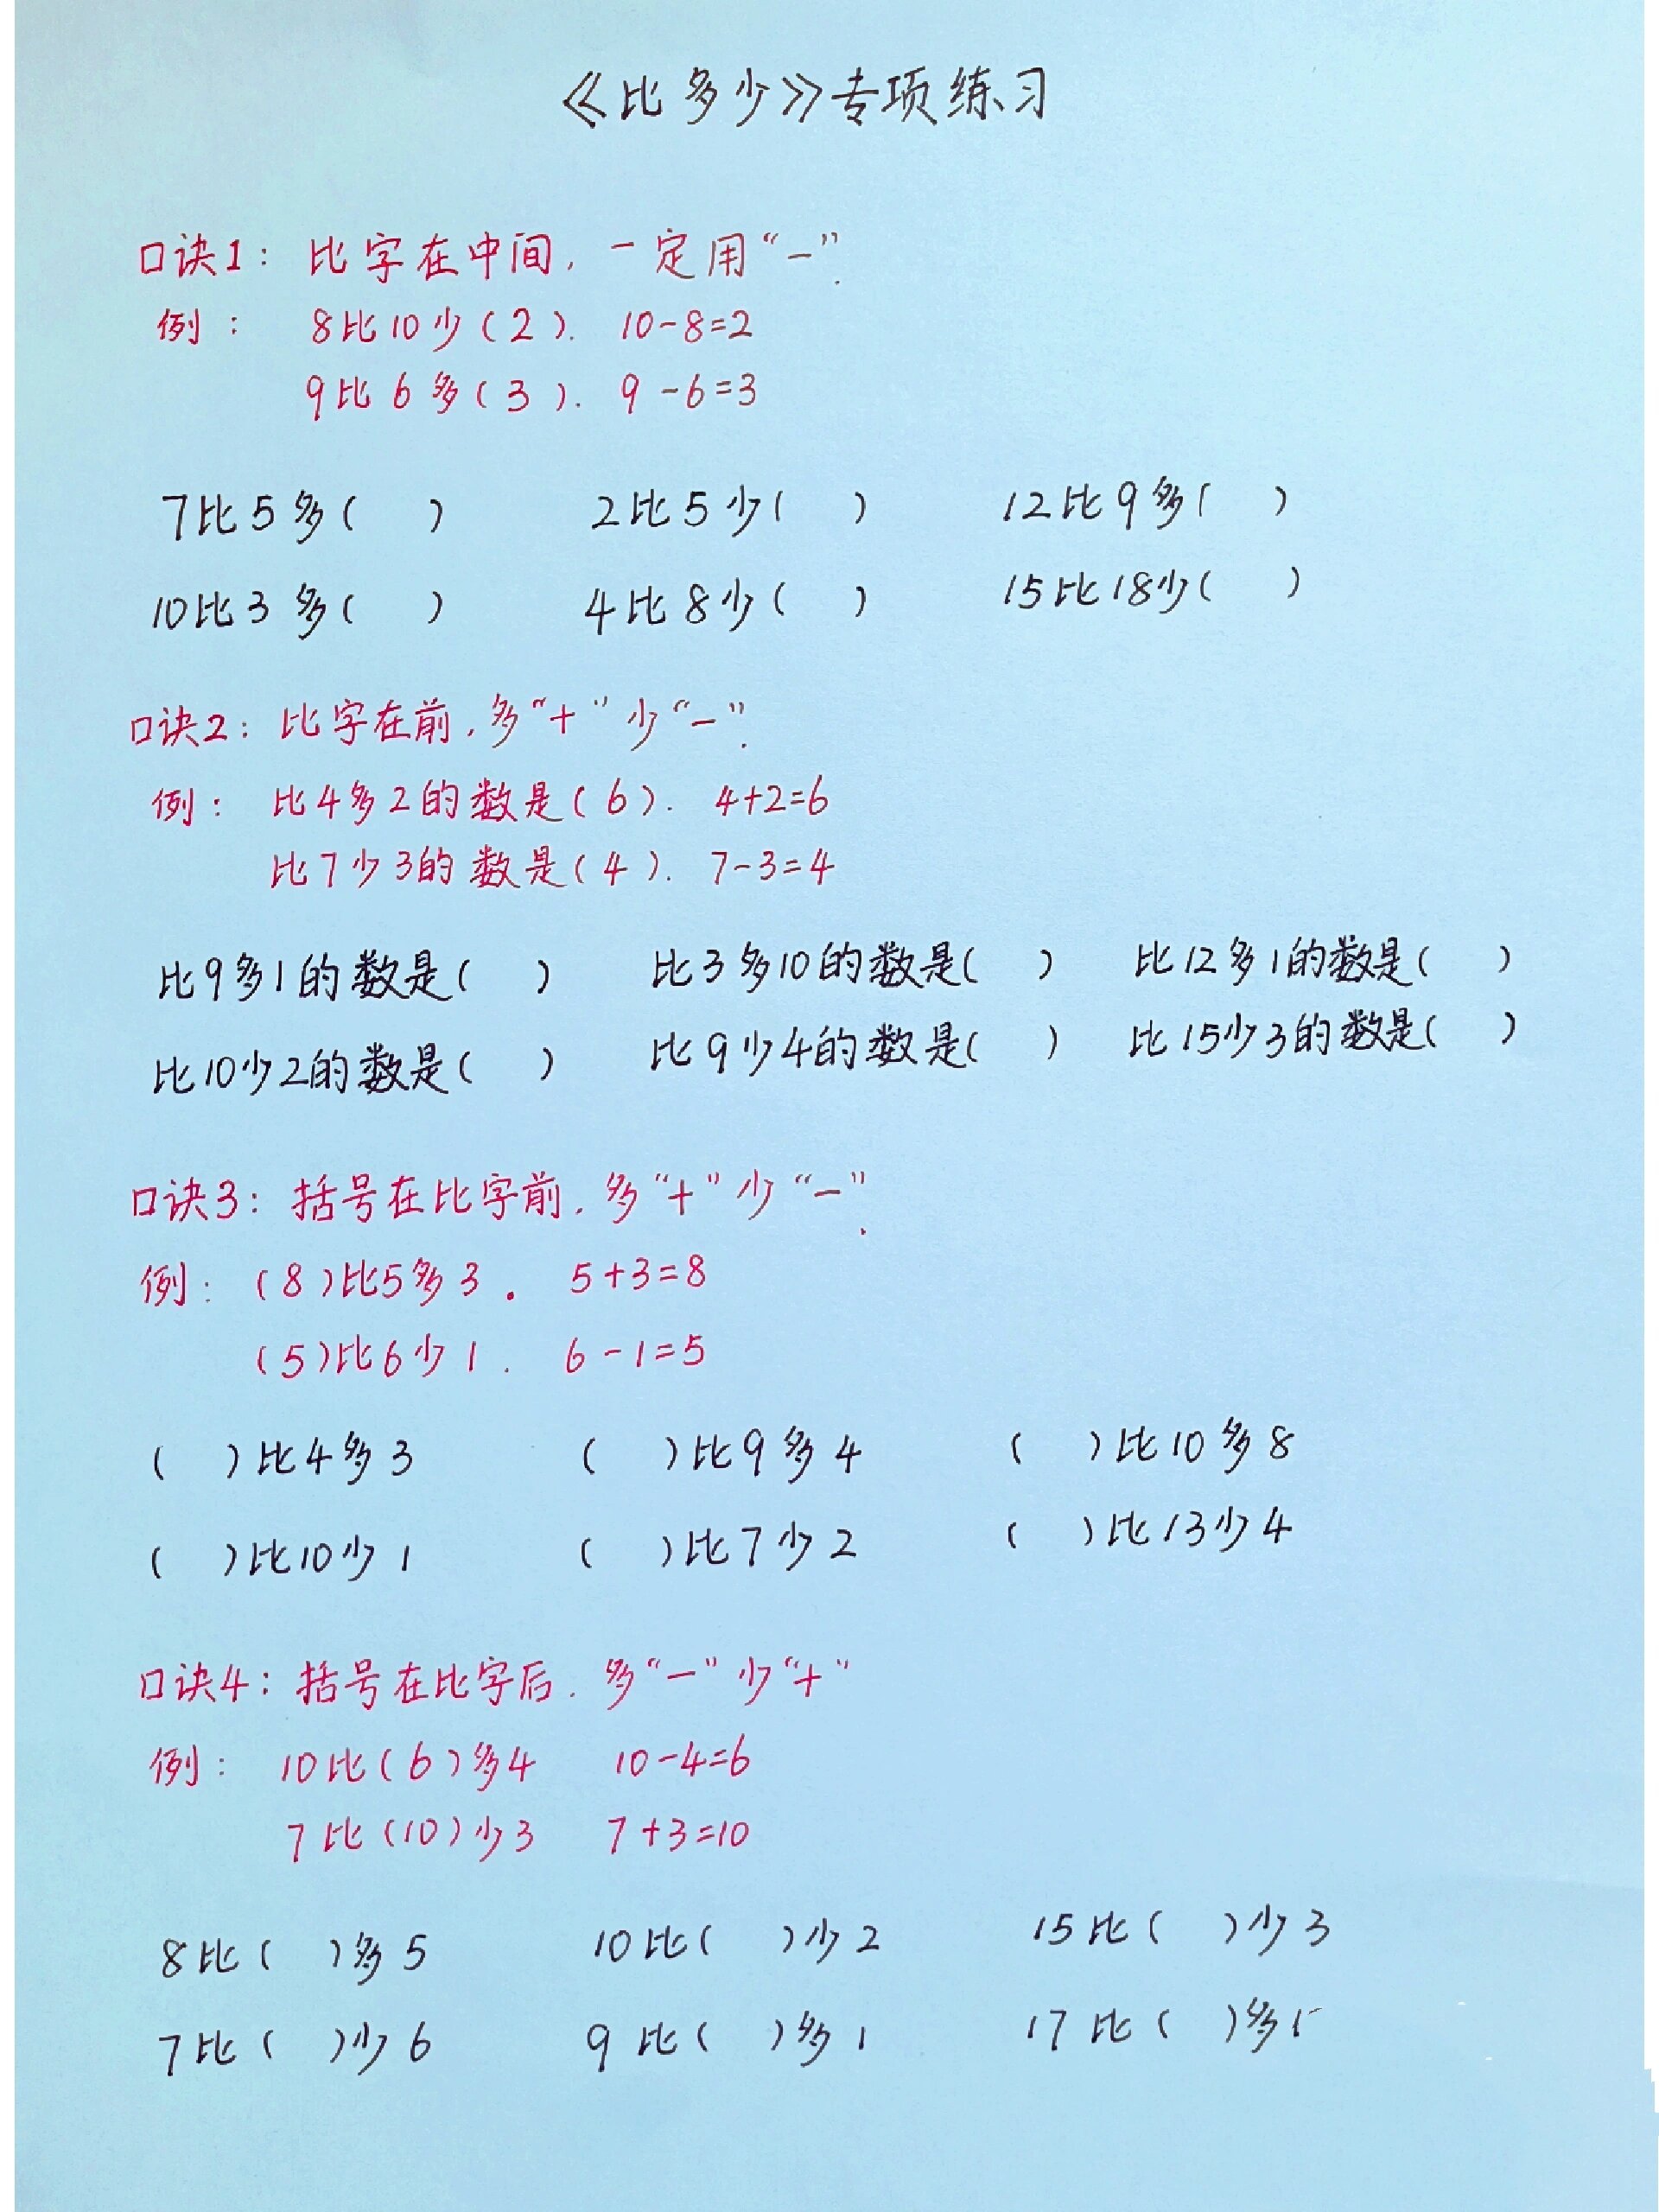 《比多少》专项练习
口诀1：比字在中间，一定用“－”.
例：8比10少(2). 10-8=2
9比6多(3). 9-6=3
7比5多( ) 2比5少( ) 12比9多( )
10比3多( ) 4比8少( ) 15比18少( )
口诀2：比字在前，多“+”少“－”.
例：比4多2的数是(6). 4+2=6
比7少3的数是(4). 7-3=4
比9多1的数是( ) 比3多10的数是( ) 比12多1的数是( )
比10少2的数是( ) 比9少4的数是( ) 比15少3的数是( )
口诀3：括号在比字前，多“+”少“－”.
例：(8)比5多3. 5+3=8
(5)比6少1. 6-1=5
( )比4多3 ( )比9多4 ( )比10多8
( )比10少1 ( )比7少2 ( )比13少4
口诀4：括号在比字后，多“－”少“+”
例：10比(6)多4 10-4=6
7比(10)少3 7+3=10
8比( )多5 10比( )少2 15比( )少3
7比( )少6 9比( )多1 17比( )多